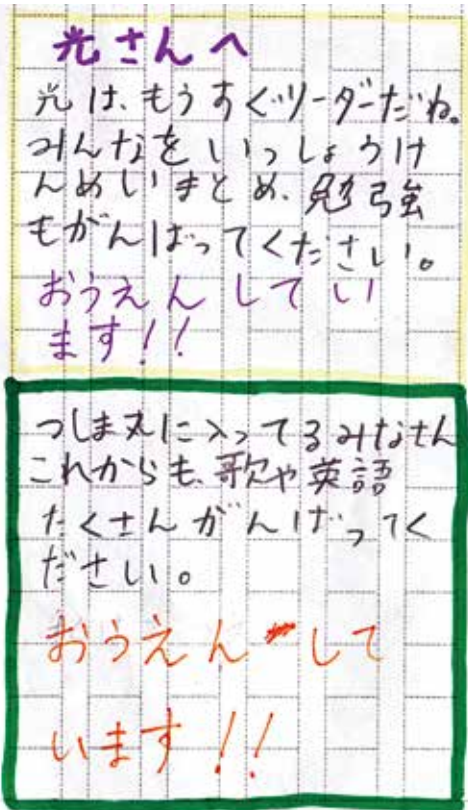 光さんへ
光は、もうすぐリーダーだね。
みんなをいっしょうけ
んめいまとめ、勉強
もがんばってください。
おうえんしてい
ます!!
つしま丸に入ってるみなせん
これからも、歌や英語
たくさんがんばってく
ださい。
おうえんして
います!!